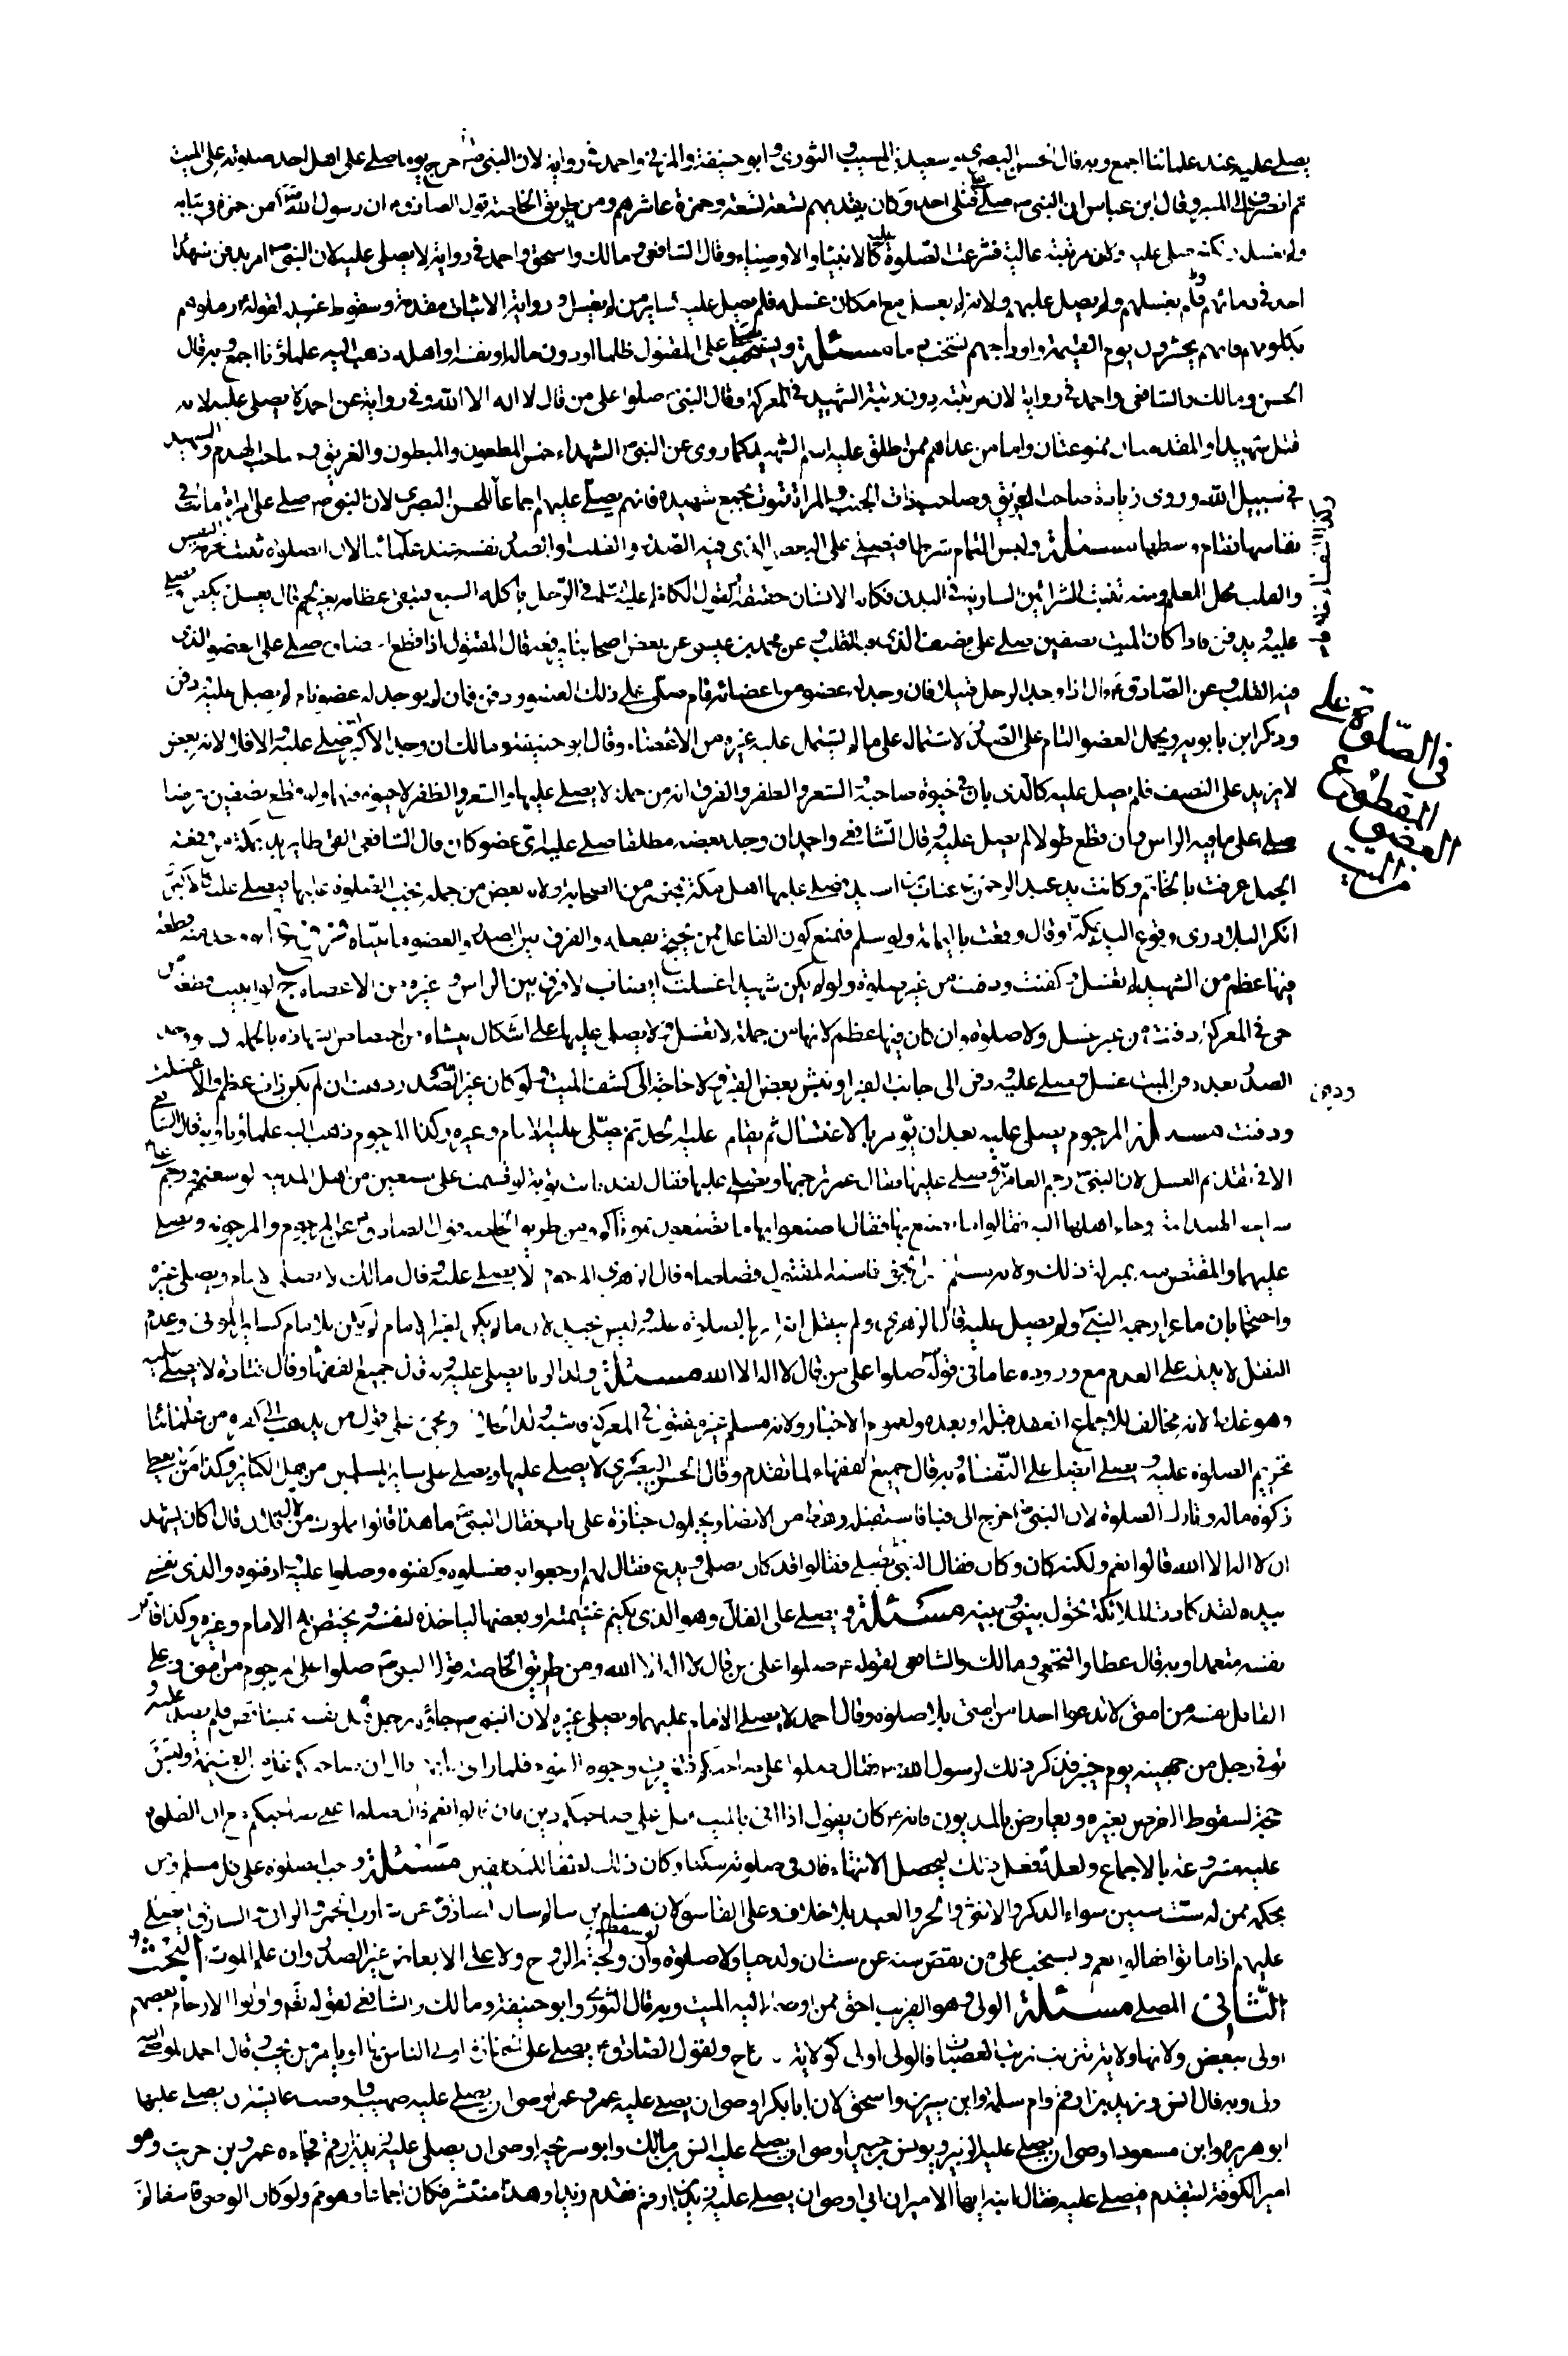 يصلى عليه عند علمائنا اجمع وبه قال الحسن البصرى وسعيد بن المسيب والثورى وابو حنيفة والمزنى واحمد فى رواية لان النبى ص خرج يوما صلى على اهل احد صلوته على الميت
ثم انصرف الى المنبر وقال ابن عباس ان النبى ص صلى على قتلى احد وكان يقدم بهم تسعة تسعة وحمزة عاشرهم ومن طريق الخاصة قول الصادق ع ان رسول الله ص كفن حمزة فى ثيابه
ولم يغسله ولكنه صلى عليه ولان مرتبته عالية فشرعت الصلوة عليه كالانبياء والاوصياء وقال الشافعى ومالك واسحق واحمد فى رواية لا يصلى عليه لان النبى ص امر بدفن شهداء
احد فى دمائهم ولم يغسلهم ولم يصل عليهم ولانه لم يغسل مع امكان غسله فلم يصل عليه كساير من لم يغسل ورواية الاثبات مقدمة وسقوط غسله لقوله ع زملوهم
بكلومهم فانهم يحشرون يوم القيمة واوداجهم تشخب دما مسئلة ويستحب على المقتول ظلما او دون ماله او نفسه او اهله ذهب اليه علماؤنا اجمع وبه قال
الحسن ومالك والشافعى واحمد فى رواية لان مرتبته دون مرتبة الشهيد فى المعركة وقال النبى ص صلوا على من قال لا اله الا الله وفى رواية عن احمد لا يصلى عليه لانه
قتل شهيدا والمقدمتان ممنوعتان واما من عداهم ممن اطلق عليه اسم الشهيد كما روى عن النبى ص الشهداء خمس المطعون والمبطون والغريق وصاحب الهدم والشهيد
فى سبيل الله وروى زيادة صاحب الحريق وصاحب ذات الجنب والمراة تموت بجمع شهيدة فانهم يصلى عليهم اجماعا الا الحسن البصرى لان النبى ص صلى على امراة ماتت فى
نفاسها فقام وسطها مسئلة وليس التمام شرطا فيصلى على البعض الذى فيه الصدر والقلب والصدر نفسه عند علمائنا لان الصلوة ثبتت لحرمة النفس
والقلب محل العلم ومنه تنبت الشرائين السارية فى البدن فكانه الانسان حقيقة ولقول الكاظم عليه السلم فى الرجل ياكله السبع فتبقى عظامه بغير لحم قال يغسل ويكفن ويصلى
عليه ويدفن واذا كان الميت نصفين صلى على نصف الذى فيه القلب وعن محمد بن عيسى عن بعض اصحابنا يرفعه قال المقتول اذا قطع اعضاؤه صلى على العضو الذى
فيه القلب وعن الصادق ع قال اذا وجد الرجل قتيلا فان وجد له عضو من اعضائه تام صلى على ذلك العضو ودفن فان لم يوجد له عضو تام لم يصل عليه ودفن
وذكر ابن بابويه ويحمل العضو التام على الصدر لاشتماله على ما لم يشتمل عليه غيره من الاعضاء وقال ابو حنيفة ومالك ان وجد الاكثر صلى عليه والا فلا لانه بعض
لا يزيد على النصف فلم يصل عليه كالذى بان فى حيوة صاحبه والشعر والظفر والفرق انه من جملة لا يصلى عليها والشعر والظفر لا حيوة فيهما ولو قطع نصفين عرضا
صلى على ما فيه الراس وان قطع طولا لم يصل عليه وقال الشافعى واحمد ان وجد بعضه مطلقا صلى عليه اى عضو كان قال الشافعى القى طاير يدا بمكة من وقعة
الجمل عرفت بالخاتم وكانت يد عبد الرحمن بن عتاب بن اسيد فصلى عليها اهل مكة بمحضر من الصحابة ولانه بعض من جملة تجب الصلوة عليها فيصلى عليه كالاكثر
انكر البلاذرى وقوع اليد بمكة وقال وقعت باليمامة ولو سلم فنمنع كون الفاعل ممن يحتج بفعله والفرق بين الصدر والعضو ما بيناه
فيها عظم من الشهيد لم تغسل وكفنت ودفنت من غير صلوة ولو لم يكن شهيدا غسلت ايضا ب لا فرق بين الراس وغيره من الاعضاء ج لو ابينت قطعة من
حى فى المعركة دفنت من غير غسل ولا صلوة وان كان فيها عظم لانها من جملة لا تغسل ولا يصلى عليها على اشكال ينشاء من اختصاص الشهادة بالجملة د لو وجد
الصدر بعد دفن الميت غسل وصلى عليه ودفن الى جانب القبر او نبش بعض القبر ولا حاجة الى كشف الميت ولو كان غير الصدر دفنت ان لم يكن ذات عظم والا غسلت
ودفنت مسئلة المرجوم يصلى عليه بعد ان يؤمر بالاغتسال ثم يقام عليه الحد ثم يصلى عليه الامام وغيره وكذا المرجوم ذهب اليه علماؤنا وبه قال الشافعى
الا فى تقديم الغسل لان النبى ص رجم الغامدية وصلى عليها فقال عمر ترجمها وتصلى عليها فقال لقد تابت توبة لو قسمت على سبعين من اهل المدينة لوسعتهم ورجم
الهمدانية وجاء اهلها اليه فقالوا ما نصنع بها فقال اصنعوا بها ما تصنعون بموتاكم ومن طريق الخاصة قول الصادق ع المرجوم والمرجومة ويصلى
عليهما والمقتص منه بمنزلة ذلك ولانه مسلم قتل بحق فاشبه المقتول قصاصا وقال الزهرى المرجوم لا يصلى عليه وقال مالك لا يصلى الامام ويصلى غيره
واحتجا بان ماعزا رجمه النبى ص ولم يصل عليه قال الزهرى ولم ينقل انه امر بالصلوة عليه وليس بجيد لان ما لم يكن لغير الامام لم يكن للامام كساير الموتى وعدم
النقل لا يدل على العدم مع وروده عاما فى قوله ص صلوا على من قال لا اله الا الله مسئلة وولد الزنا يصلى عليه وبه قال جميع الفقهاء وقال قتادة لا يصلى عليه
وهو غلط لانه مخالف للاجماع انعقد قبله او بعده ولعموم الاخبار ولانه مسلم غيره مقتول فى المعركة فاشبه ولد الحلال ويجئ على قول من يذهب الى كفره من علمائنا
تحريم الصلوة عليه ويصلى ايضا على النفساء وبه قال جميع الفقهاء لما تقدم وقال الحسن البصرى لا يصلى عليها ويصلى على ساير المسلمين من اهل الكبائر وكذا من لم يعط
زكوة ماله وتارك الصلوة لان النبى ص خرج الى قبا فاستقبله رهط من الانصار يحملون جنازة على باب فقال النبى ص ما هذا قالوا مملوك من آل فلان قال اكان يشهد
ان لا اله الا الله قالوا نعم ولكنه كان وكان فقال النبى ص يصلى فقالوا قد كان يصلى ويدع فقال لهم ارجعوا به فغسلوه وكفنوه وصلوا عليه وادفنوه والذى نفسى
بيده لقد كادت الملائكة تحول بينى وبينه مسئلة ويصلى على الغال وهو الذى يكتم غنيمته او بعضها لياخذه لنفسه ويختص به الامام وغيره وكذا قاتل
نفسه متعمدا وبه قال عطا والنخعى ومالك والشافعى لقوله ع صلوا على من قال لا اله الا الله ومن طريق الخاصة قول النبى ص صلوا على المرجوم من امتى وعلى
القاتل نفسه من امتى لا تدعوا احدا من امتى بلا صلوة وقال احمد لا يصلى الامام عليهما ويصلى غيره لان النبى ص جاؤه برجل قتل نفسه بمشاقص فلم يصل عليه و
توفى رجل من جهينة يوم خيبر فذكر ذلك لرسول الله ص فقال صلوا على صاحبكم فتغيرت وجوه القوم فلما راى ما بهم قال ان صاحبكم غل من الغنيمة وليس
حجة لسقوط الفرض بغيره ويعارض بالمديون فانه ع كان يقول اذا اتى بالميت هل على صاحبكم دين فان قالوا نعم قال صلوا على صاحبكم مع ان الصلوة
عليه مشروعة بالاجماع ولعله فعل ذلك ليحصل الانتهاء فان فى صلوته سكنا وكان ذلك لطفا للمكلفين مسئلة وتجب الصلوة على كل مسلم ومن
بحكمه ممن له ست سنين سواء الذكر والانثى والحر والعبد بلا خلاف وعلى الفاسق لان هشام بن سالم سال الصادق ع عن شارب الخمر والزانى والسارق ايصلى
عليهم اذا ماتوا فقال نعم ويستحب على من نقص سنه عن ست ان ولد حيا ولا صلوة لو سقط وان ولجته الروح ولا على الابعاض غير الصدر وان علم الموت البحث
الثانى المصلى مسئلة الولى وهو القريب احق ممن اوصى اليه الميت وبه قال الثورى وابو حنيفة ومالك والشافعى لقوله تعالى واولوا الارحام بعضهم
اولى ببعض ولانها ولاية تترتب بترتب العصبات فالولى اولى كولاية النكاح ولقول الصادق ع يصلى على الجنازة اولى الناس بها او يامر من يحب وقال احمد الموصى اليه
اولى وبه قال انس وزيد بن ارقم وام سلمة وابن سيرين واسحق لان ابا بكر اوصى ان يصلى عليه عمر وعمر اوصى ان يصلى عليه صهيب واوصت عايشة ان يصلى عليها
ابو هريرة وابن مسعود اوصى ان يصلى عليه الزبير ويونس بن جبير اوصى ان يصلى عليه انس بن مالك وابو سريحة اوصى ان يصلى عليه زيد بن ارقم فجاءه عمرو بن حريث وهو
امير الكوفة ليتقدم فيصلى عليه فقال ابنه ايها الامير ان ابى اوصى ان يصلى عليه زيد بن ارقم فقدم زيدا وهذا منتشر فكان اجماعا وهو ثم ولو كان الوصى فاسقا لم
فى الصلوة على
المقطوع
العضو
من الميت